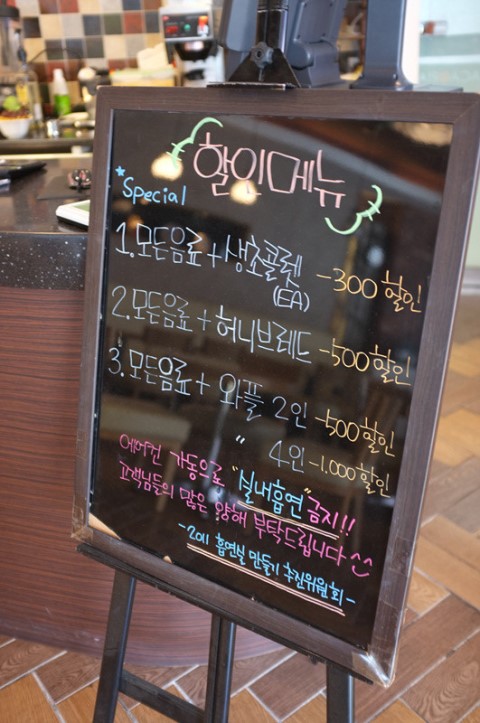 할인메뉴
Special
1. 모든음료 + 생초콜렛 -300 할인
(EA)
2. 모든음료 + 허니브레드 -500 할인
3. 모든음료 + 와플 2인 -500 할인
" 4인 -1,000 할인
에어컨 가동으로 "실내흡연" 금지!!
고객님들의 많은 양해 부탁드립니다 ^^
-2011 흡연실 만들기 추진위원회-